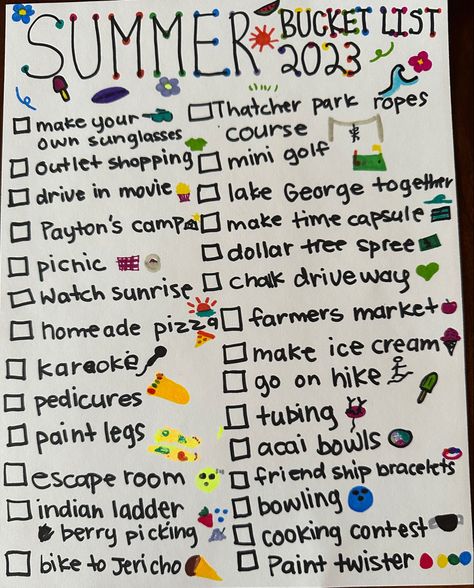 SUMMER BUCKET LIST
2023
make your
own sunglasses
outlet shopping
drive in movie
Payton's camp
picnic
watch sunrise
homeade pizza
karaoke
pedicures
paint legs
escape room
indian ladder
berry picking
bike to Jericho
Thatcher park ropes
course
mini golf
lake George together
make time capsule
dollar tree spree
chalk driveway
farmers market
make ice cream
go on hike
tubing
acai bowls
friend ship bracelets
bowling
cooking contest
Paint twister